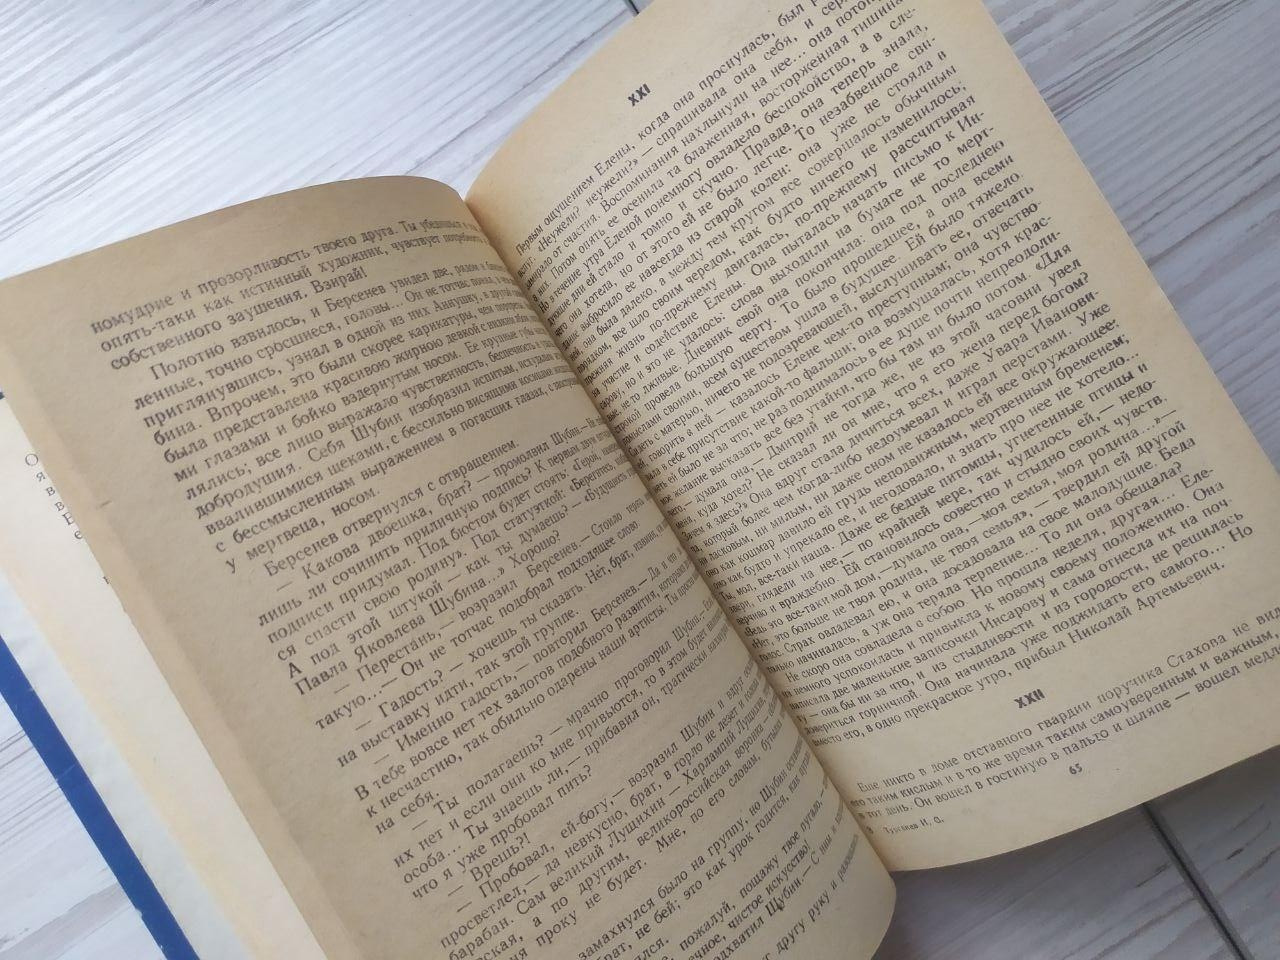 номудрие и прозорливость твоего друга. Ты убедишься
опять-таки как истинный художник, чувствует потребность
собственного заушения. Взирай!
Полотно взвилось, и Берсенев увидел две, рядом и близко
ленные, точно сросшиеся, головы... Он не тотчас понял,
приглянувшись, узнал в одной из них Аннушку, в другой
бина. Впрочем, это были скорее карикатуры, чем портреты
была представлена красивою жирною девкой с низким
ми глазами и бойко вздернутым носом. Ее крупные губы
лялись; все лицо выражало чувственность, беспечность и
добродушия. Себя Шубин изобразил испитым, исхудалым
ввалившимися щеками, с бессильно висящими косицами
с бессмысленным выражением в погасших глазах, с заостренным
у мертвеца, носом.
Берсенев отвернулся с отвращением.
— Какова двоешка, брат? — промолвил Шубин.—
лишь ли сочинить приличную подпись? К первым двум
подписи придумал. Под бюстом будет стоять: «Герой,
ся спасти свою родину». Под статуэткой: «Берегитесь,
А под этой штукой — как ты думаешь? — «Будущность
Павла Яковлева Шубина...» Хорошо?
— Перестань,— возразил Берсенев.— Стоило
такую...— Он не тотчас подобрал подходящее слово.
— Гадость? — хочешь ты сказать. Нет, брат, извини,
на выставку идти, так этой группе.
— Именно гадость,— повторил Берсенев.— Да и что
В тебе вовсе нет тех залогов подобного развития, которыми
к несчастию, так обильно одарены наши артисты. Ты
на себя.
— Ты полагаешь? — мрачно проговорил Шубин.—
их нет и если они ко мне привьются, то в этом будет
особа... Ты знаешь ли,— прибавил он, трагически
что я уже пробовал пить?
— Врешь?!
— Пробовал, ей-богу,— возразил Шубин и вдруг
просветлел,— да невкусно, брат, в горло не лезет, и голова
барабан. Сам великий Лущихин — Харлампий Лущихин,
ская, а по другим, великороссийская воронка —
проку не будет. Мне, по его словам,
замахнулся было на группу, но Шубин
брат, не бей; это как урок годится, как пугало.
пожалуй, пощажу твое пугало,—
вечное, чистое искусство!
подхватил Шубин.— С ним и
друг другу руку и
XXI
Первым ощущением Елены, когда она проснулась, был
«Неужели? неужели?» — спрашивала она себя, и
от счастия. Воспоминания нахлынули на нее... она
Потом опять ее осенила та блаженная, восторженная тишина
в течение утра Еленой понемногу овладело беспокойство, а в
дни ей стало и томно и скучно. Правда, она теперь знала,
чего она хотела, но от этого ей не было легче. То незабвенное
выбросило ее навсегда из старой колеи: она уже не стояла в
была далеко, а между тем кругом все совершалось обычным
порядком, все шло своим чередом, как будто ничего не изменилось;
жизнь по-прежнему двигалась, по-прежнему рассчитывая
участие и содействие Елены. Она пыталась начать письмо к
но и это не удалось: слова выходили на бумаге не то
не то лживые. Дневник свой она покончила: она под последнею
провела большую черту. То было прошедшее, а она всеми
своими, всем существом ушла в будущее. Ей было тяжело.
с матерью, ничего не подозревающей, выслушивать ее, отвечать
говорить с ней — казалось Елене чем-то преступным; она чувствовала
в себе присутствие какой-то фальши; она возмущалась, хотя краснеть
было не за что; не раз поднималось в ее душе почти непреодолимое
желание высказать все без утайки, что бы там ни было потом. «Для
— думала она,— Дмитрий не тогда же, не из этой часовни увел
куда хотел? Не сказал ли он мне, что я его жена перед богом?
я здесь?» Она вдруг стала дичиться всех, даже Увара Ивановича,
который более чем когда-либо недоумевал и играл перстами. Уже
ласковым, ни милым, ни даже сном не казалось ей все окружающее:
как кошмар давило ей грудь неподвижным, мертвенным бременем;
как будто и упрекало ее, и негодовало, и знать про нее не хотело...
мол, все-таки наша. Даже ее бедные питомцы, угнетенные птицы и
глядели на нее,— по крайней мере, так чудилось ей,—
и враждебно. Ей становилось совестно и стыдно своих чувств.
это все-таки мой дом,— думала она,— моя семья, моя родина...»—
«Нет, это больше не твоя родина, не твоя семья»,— твердил ей другой
голос. Страх овладевал ею, и она досадовала на свое малодушие. Беда
только начиналась, а уж она теряла терпение... То ли она обещала?
Не скоро она совладела с собою. Но прошла неделя, другая...
немного успокоилась и привыкла к новому своему положению. Она
написала две маленькие записочки Инсарову и сама отнесла их на
она бы ни за что, и из стыдливости и из гордости, не решилась
довериться горничной. Она начинала уже поджидать его самого... Но
вместо его, в одно прекрасное утро, прибыл Николай Артемьевич.
XXII
Еще никто в доме отставного гвардии поручика Стахова не
его таким кислым и в то же время таким самоуверенным и важным,
в тот день. Он вошел в гостиную в пальто и шляпе — вошел
65
Тургенев И. С.